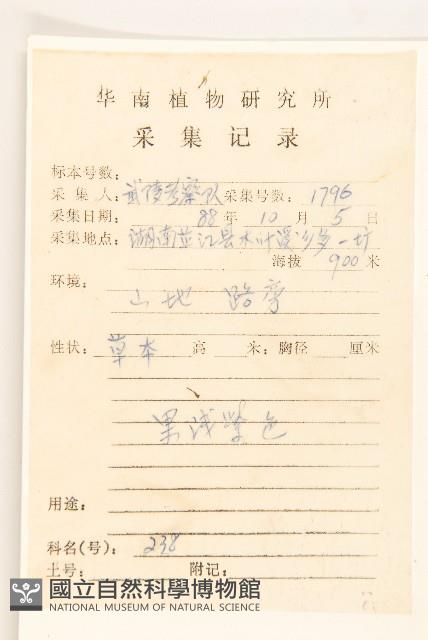 华南植物研究所
采集记录
标本号数：
采集人：武陵考察队 采集号数：1796
采集日期：88年10月5日
采集地点：湖南芷江县
海拔 900米
环境：
山地 路旁
性状：草本 高 米；胸径 厘米
果浅紫色
用途：
科名(号)：238
土号： 附记：
國立自然科學博物館
NATIONAL MUSEUM OF NATURAL SCIENCE